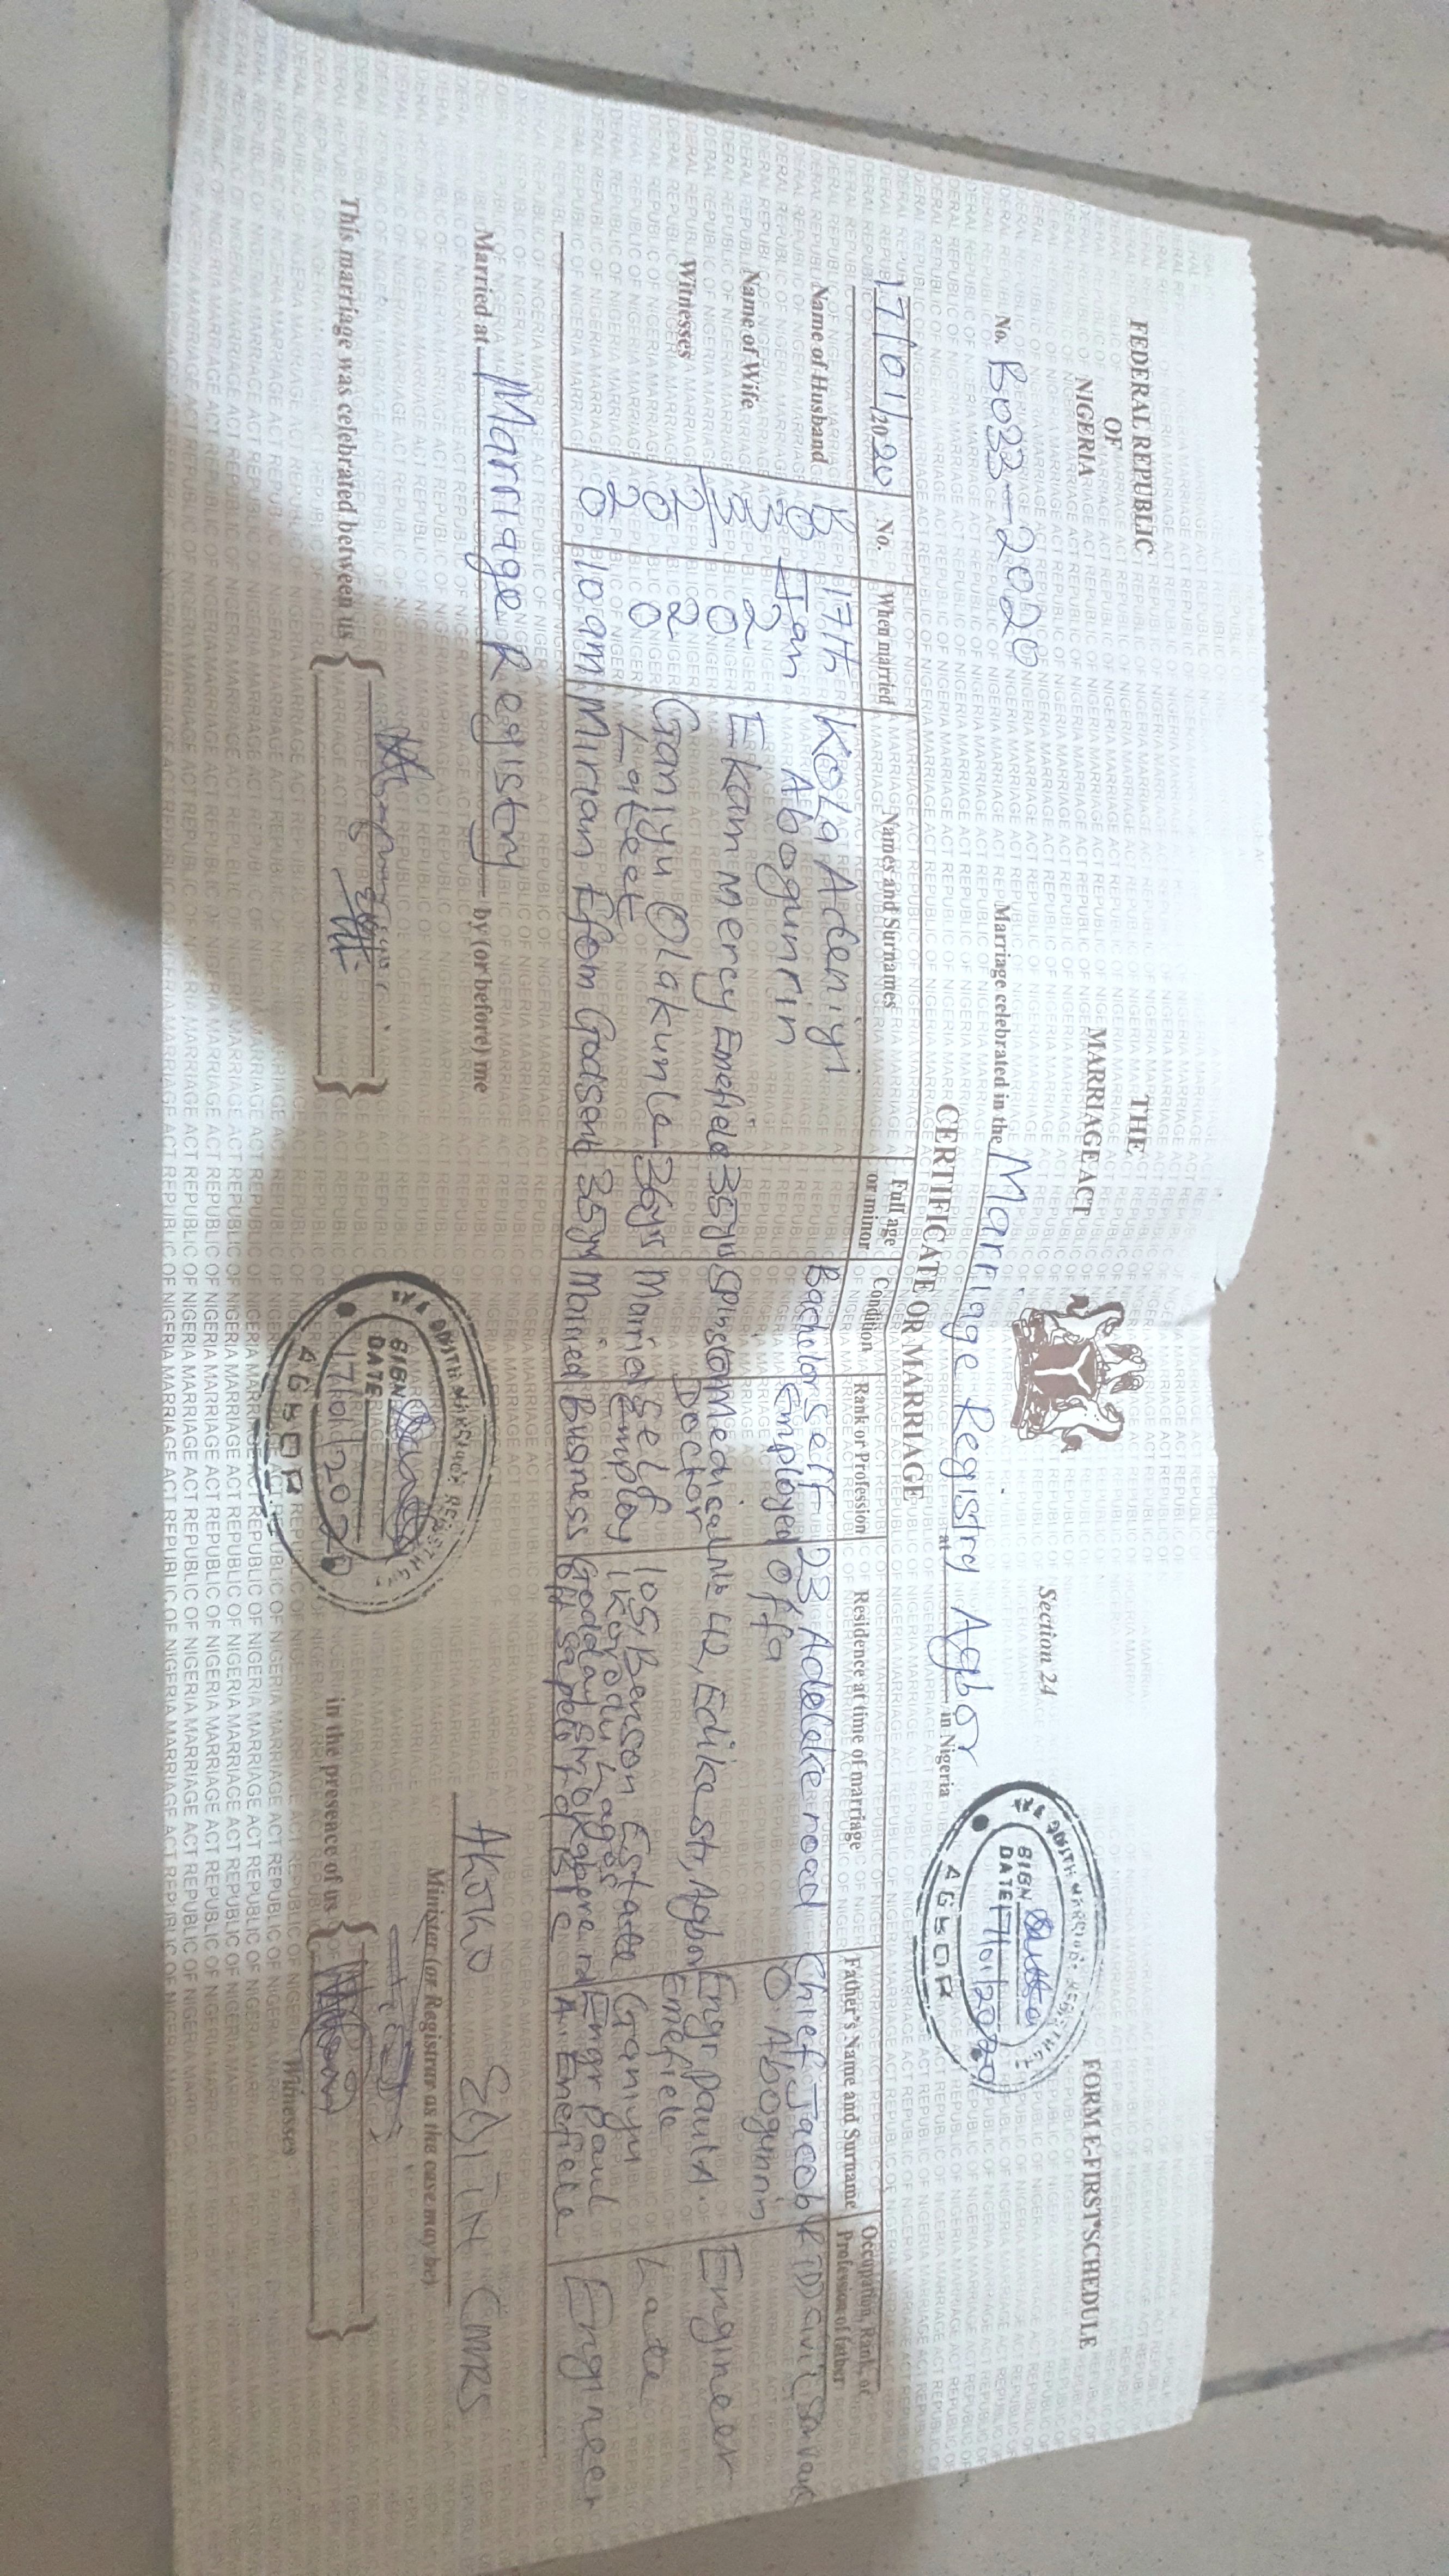 FEDERAL REPUBLIC
OF
NIGERIA
THE
MARRIAGE ACT
Section 24
FORM E-FIRST SCHEDULE
No. B033-2020
Marriage celebrated in the Marriage Registry Agbor
at in Nigeria
SIGN
DATE 17/01/2020
AGBOR
CERTIFICATE OR MARRIAGE
17/01/2020
No.
When married
Names and Surnames
Full age
or minor
Condition
Rank or Profession
Residence at time of marriage
Father's Name and Surname
Occupation, Rank, or
Profession of father
Name of Husband
Name of Wife
Witnesses
B
0
3
3
2
0
2
0
17th
Jan
2
0
2
0
10am
Kola Adeniyi
Abogunrin
Bachelor
Self
Employed
23, Adeleke road
Offa
Chief Jacob
O. Abogunrin
Ekam Mercy Emefiele
35yrs
Spinster
Medical
Doctor
No 42, Edike str, Agbor
Engr Paul A.
Emefiele
Engineer
Ganiyu Olakunle
Lateef
36yrs
Married
Self
Employ
105, Benson Estate
Ikorodu Lagos
Ganiyu
Late
Mirian Efom Godsent
35yrs
Married
Business
Godday str
off sapele rd
Engr Paul
A. Emefiele
Engineer
Married at Marriage Registry by (or before) me
EDITH CMRS
Minister (or Registrar as the case may be)
This marriage was celebrated between us
in the presence of us
Witnesses
SIGN
DATE
17/01/2020
AGBOR